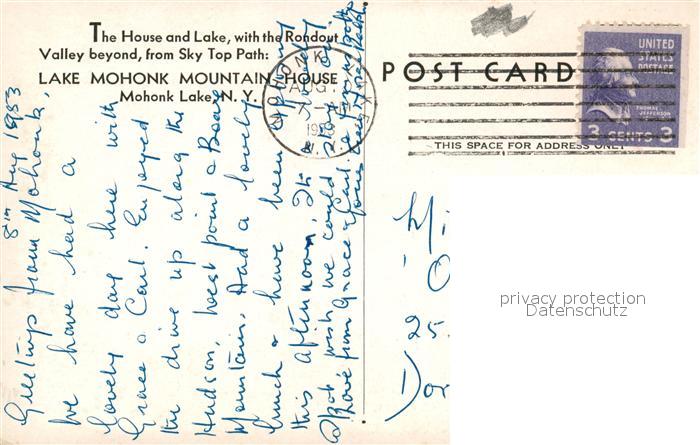 The House and Lake, with the Rondout
Valley beyond, from Sky Top Path:
LAKE MOHONK MOUNTAIN HOUSE
Mohonk Lake, N. Y.
POST CARD
THIS SPACE FOR ADDRESS ONLY
UNITED
STATES
POSTAGE
THOMAS
JEFFERSON
3 CENTS 3
AUG
N.Y.
8th Aug 1953
Greetings from Mohonk,
We have had a
lovely day here with
Grace & Carl. Enjoyed
the drive up along the
Hudson, West Point & Bear
Mountain. Had a lovely
lunch & have been
this afternoon.
wish we could stay
Love from Grace & Carl &
Mi
O
25.
Dor
privacy protection
Datenschutz